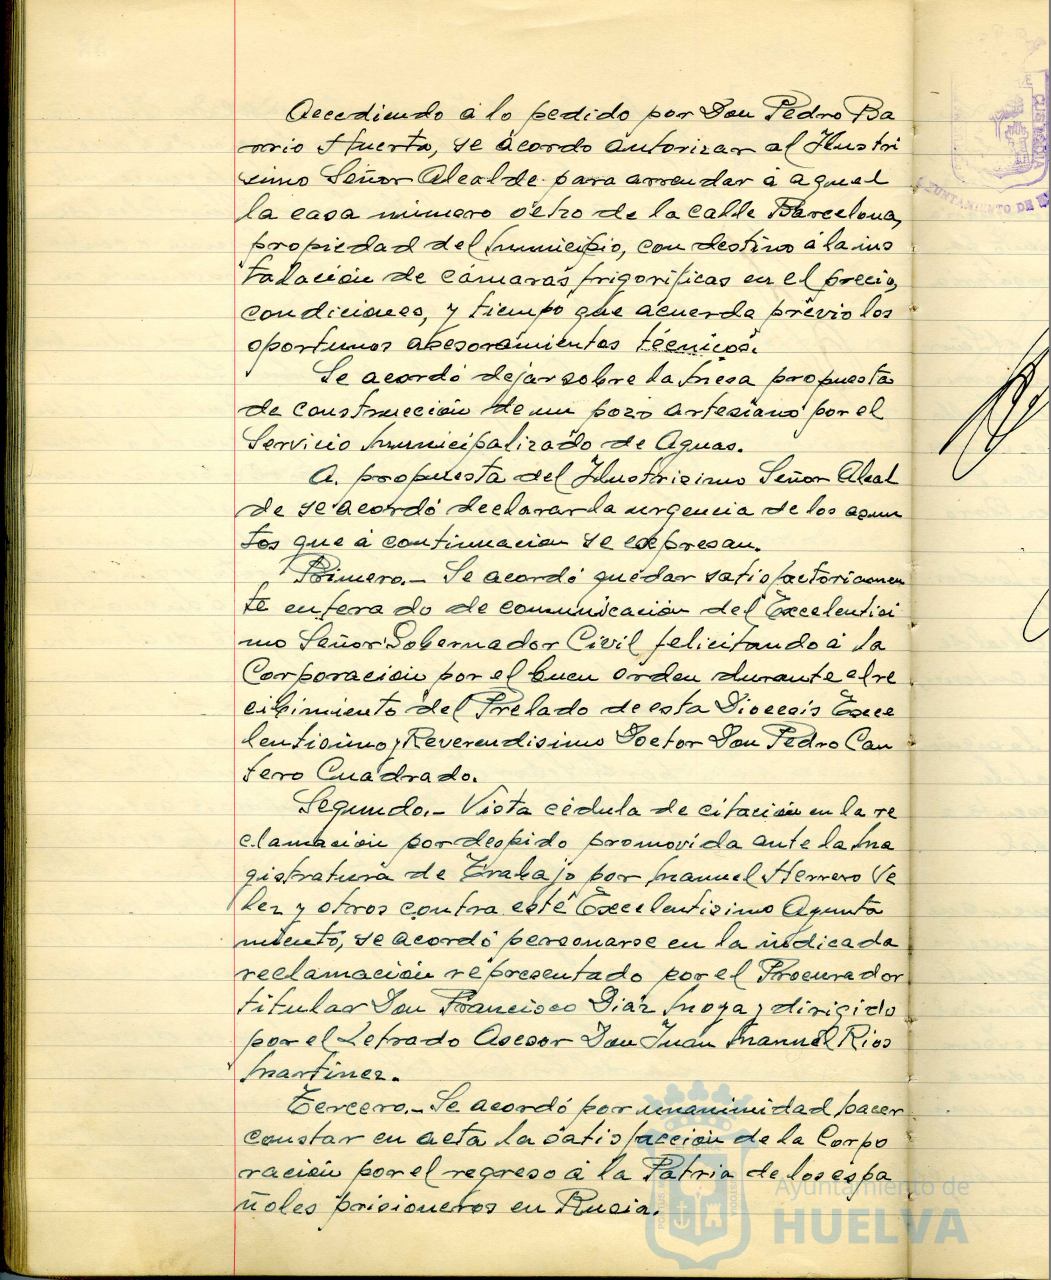 Accediendo á lo pedido por Don Pedro Ba
rrio Huerto, se acordo autorizar al Ilustri
simo Señor Alcalde para arrendar á aquel
la casa número ocho de la calle Barcelona,
propiedad del Municipio, con destino á la ins
talación de cámaras frigoríficas en el precio,
condiciones, y tiempo que acuerda prévio los
oportunos asesoramientos técnicos.
Se acordó dejar sobre la Mesa propuesta
de construcción de un pozo artesiano por el
Servicio Municipalizado de Aguas.
A propuesta del Ilustrisimo Señor Alcal
de se acordó declarar la urgencia de los asun
tos que á continuación se expresan.
Primero.- Se acordó quedar satisfactoriamen
te enterado de comunicación del Excelentisi
mo Señor Gobernador Civil felicitando á la
Corporación por el buen orden durante el re
cibimiento del Prelado de esta Diocesis Exce
lentisimo y Reverendisimo Doctor Don Pedro Can
tero Cuadrado.
Segundo.- Vista cédula de citación en la re
clamación por despido promovida ante la Ma
gistratura de Trabajo por Manuel Herrero Ve
lez y otros contra esté Excelentisimo Ayunta
miento, se acordó personarse en la indicada
reclamación representado por el Procurador
titular Don Francisco Diaz Moya y dirigido
por el Letrado Asesor Don Juan Manuel Rios
Martinez.
Tercero.- Se acordó por unanimidad hacer
constar en acta la satisfacción de la Corpo
ración por el regreso á la Patria de los espa
ñoles prisioneros en Rusia.
Ayuntamiento de
HUELVA
AYUNTAMIENTO DE